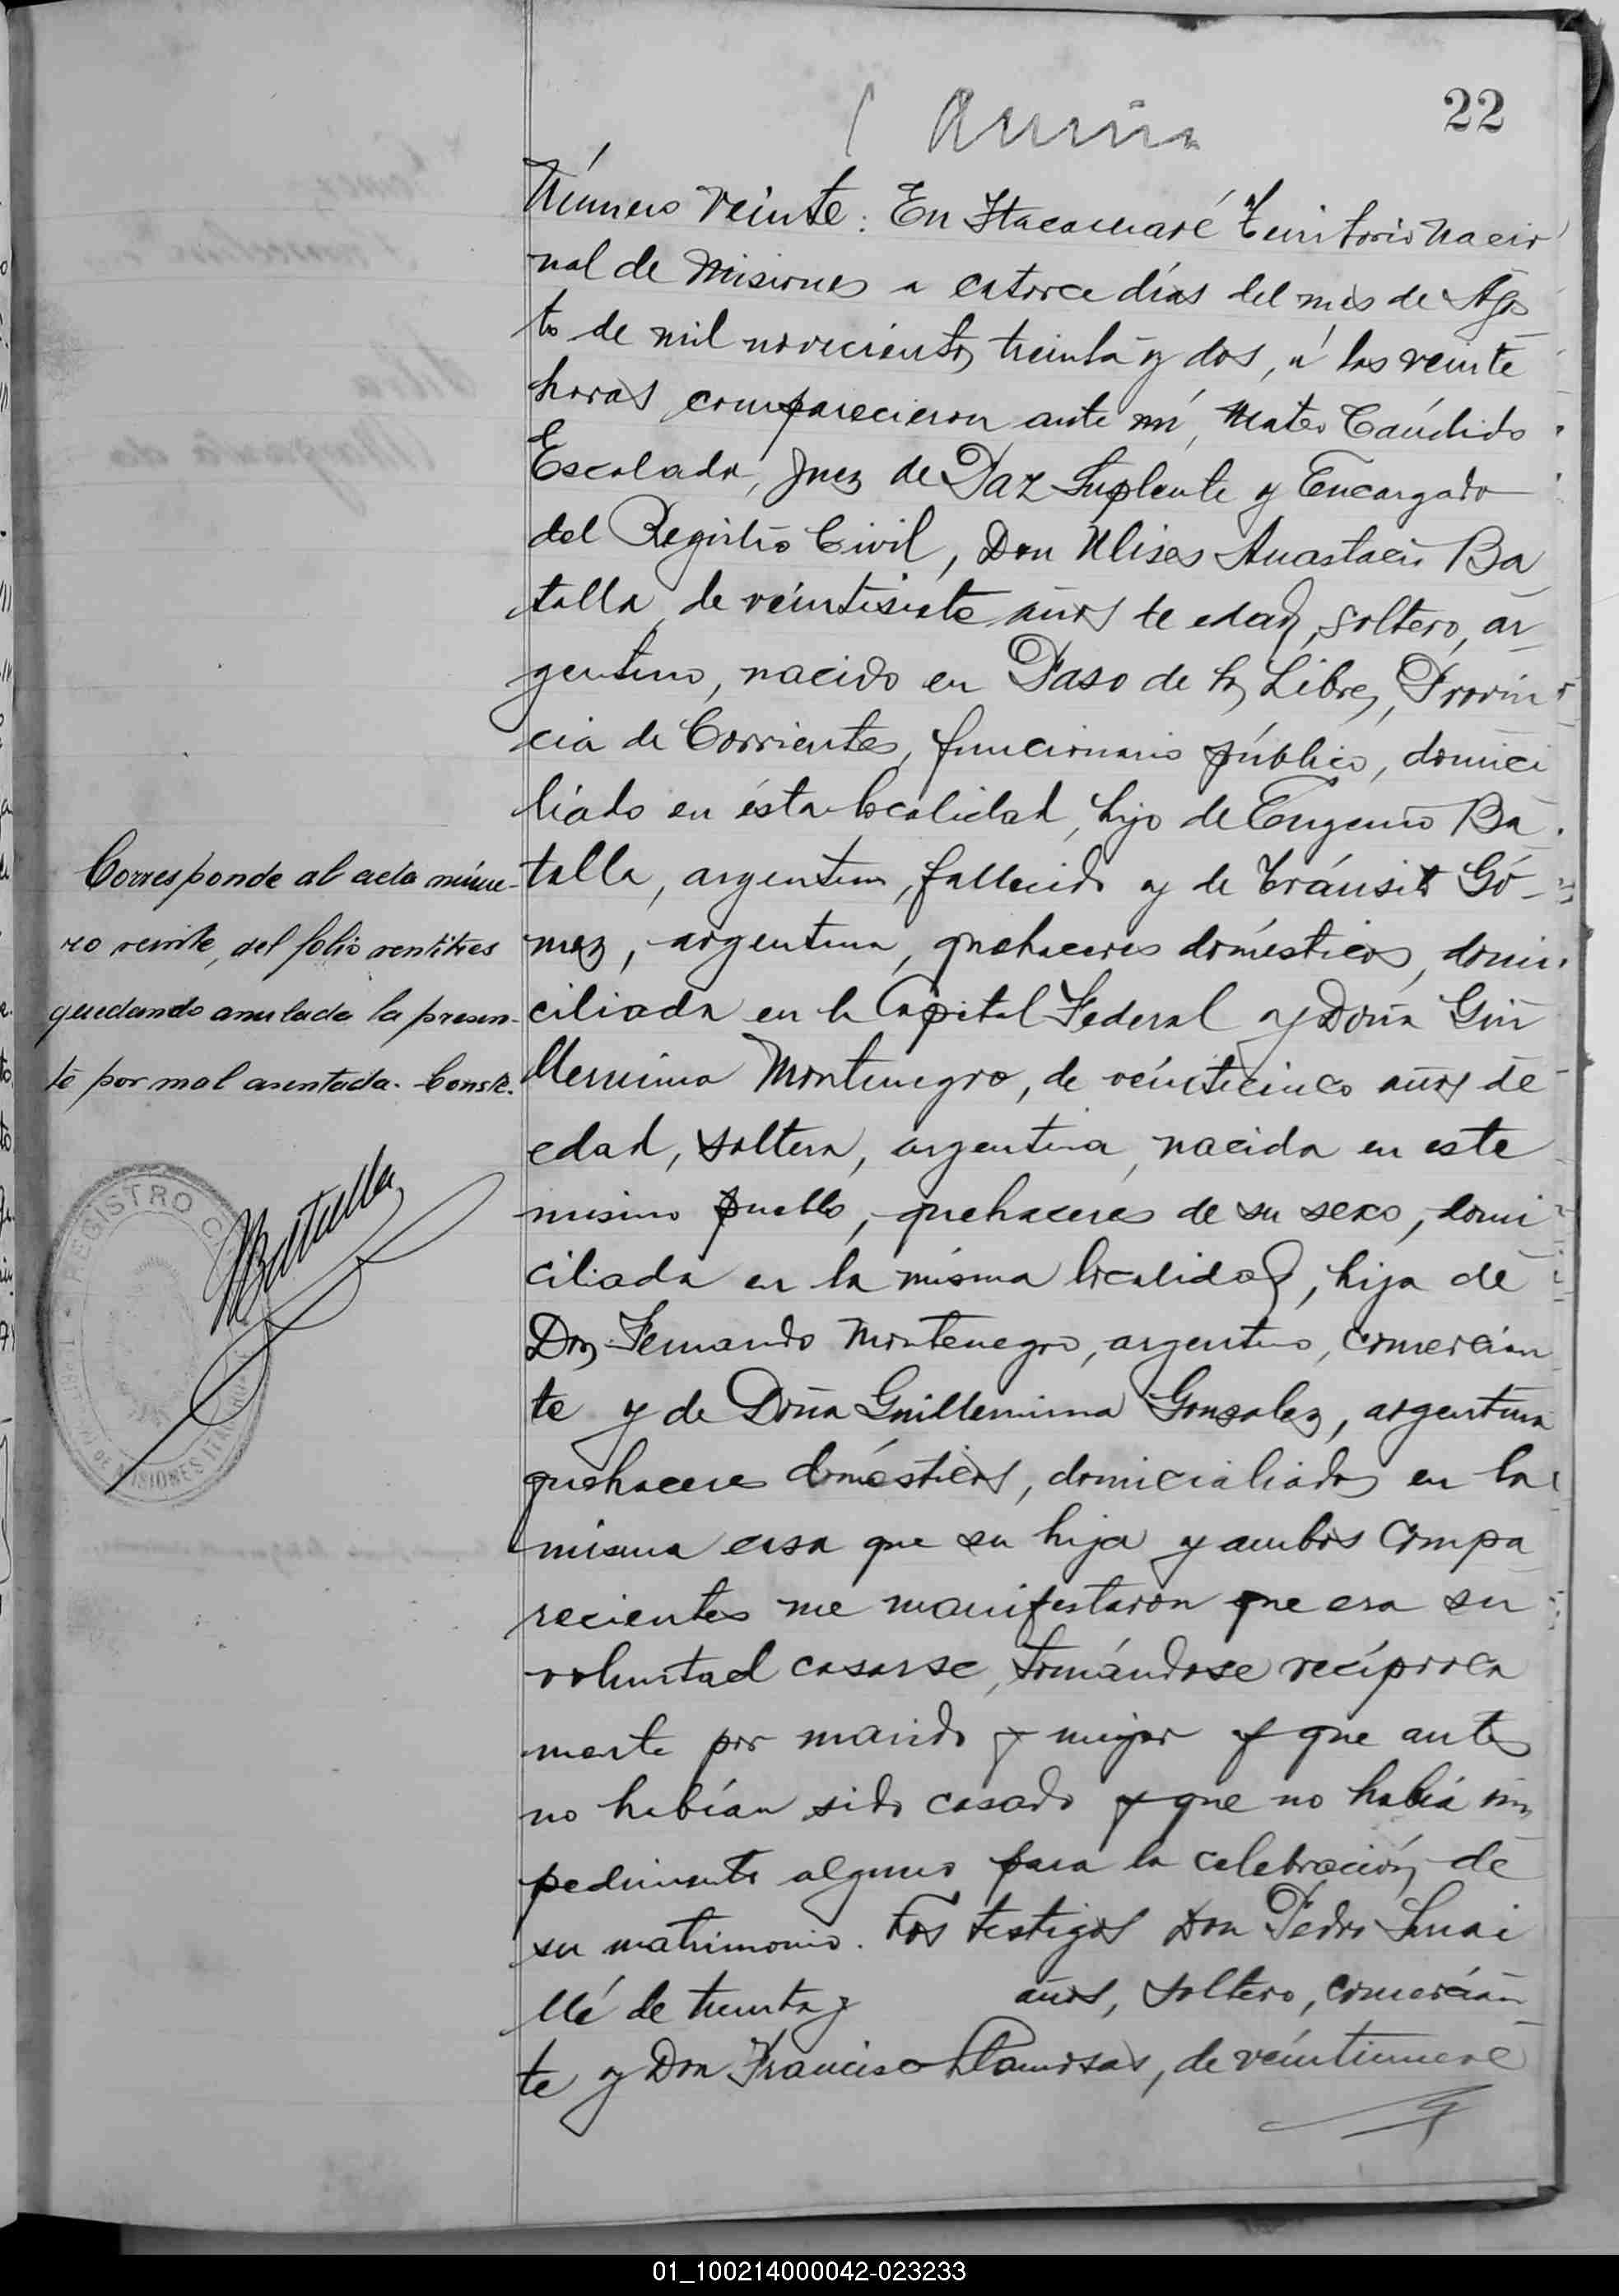 22
Número veinte: En Itacaruaré Territorio Nacio
nal de Misiones a catorce días del mes de Ags
to de mil novecientos treinta y dos, á las veinte
horas comparecieron ante mí, Mateo Cándido
Escalada, Juez de Paz Suplente y Encargado
del Registro Civil, Don Ulises Anastacio Ba
talla, de veintisiete años de edad, soltero, ar
gentino, nacido en Paso de los Libres, Provin
cia de Corrientes, funcionario público, domici
liado en ésta localidad, hijo de Eugenio Ba
talla, argentino, fallecido y de Tránsito Gó
mez, argentina, quehaceres domésticos, domi
ciliada en la Capital Federal y Doña Gui
llermina Montenegro, de veinticinco años de
edad, soltera, argentina, nacida en este
mismo pueblo, quehaceres de su sexo, domi
ciliada en la misma localidad, hija de
Don Fernando Montenegro, argentino, comercian
te y de Doña Guillermina Gonzalez, argentina
quehaceres domésticos, domicialiados en la
misma casa que su hija y ambos compa
recientes me manifestaron que era su
voluntad casarse, tomándose recíproca
mente por marido y mujer y que antes
no habían sido casado y que no había im
pedimento alguno para la celebración de
su matrimonio. Los testigos Don Pedro
llé de treinta y años, soltero, comercian
te y Don Francisco Llamosas, de veintinueve
Corresponde al acta núme-
ro veinte, del folio ventitres
quedando anulada la presen-
te por mal asentada. Conste.
Batalla
REGISTRO C
MISIONES
01_100214000042-023233